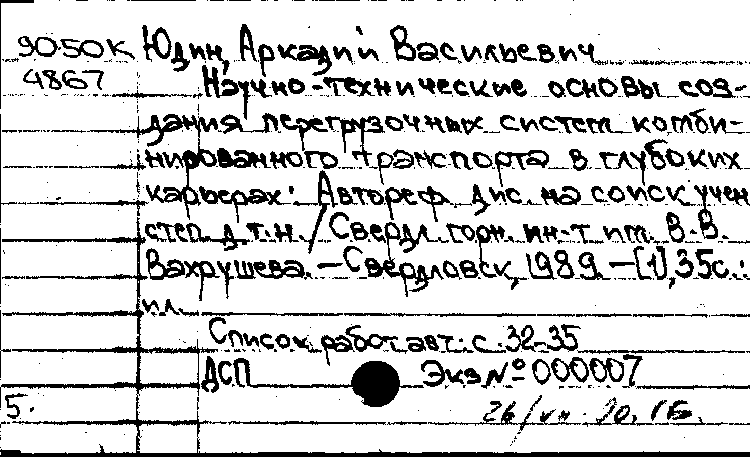 9050К Юдин, Аркадий Васильевич
4867 Научно-технические основы соз-
дания перегрузочных систем комби-
нированного транспорта в глубоких
карьерах: Автореф. дис. на соиск. учен
степ. д.т.н. / Свердл. горн. ин-т им. В.В.
Вахрушева. — Свердловск, 1989. — [1], 35с.:
ил.
Список работ авт.: с. 32-35
ДСП Экз № 000007
5.